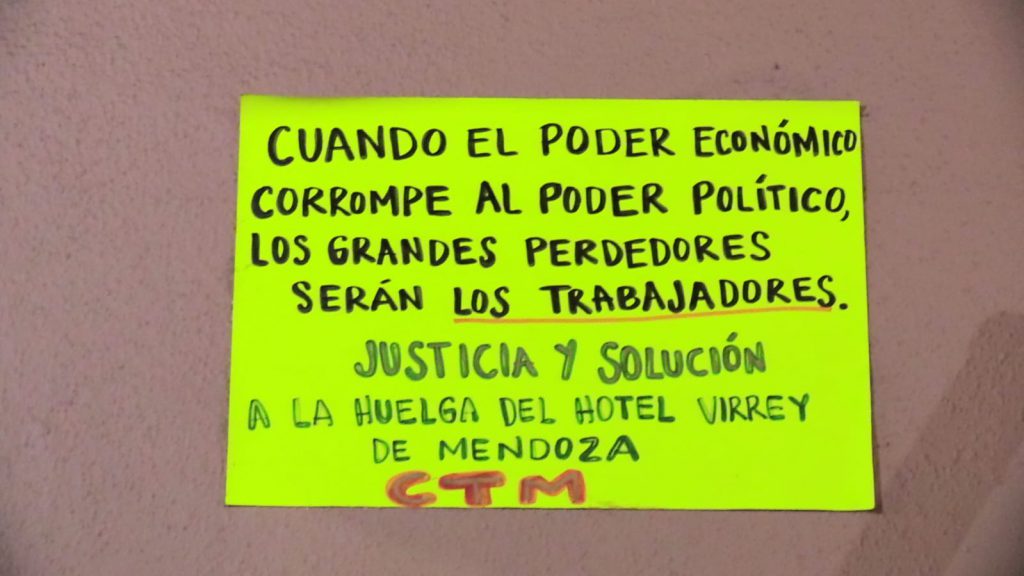 CUANDO EL PODER ECONÓMICO
CORROMPE AL PODER POLÍTICO,
LOS GRANDES PERDEDORES
SERÁN LOS TRABAJADORES.
JUSTICIA Y SOLUCIÓN
A LA HUELGA DEL HOTEL VIRREY
DE MENDOZA
CTM